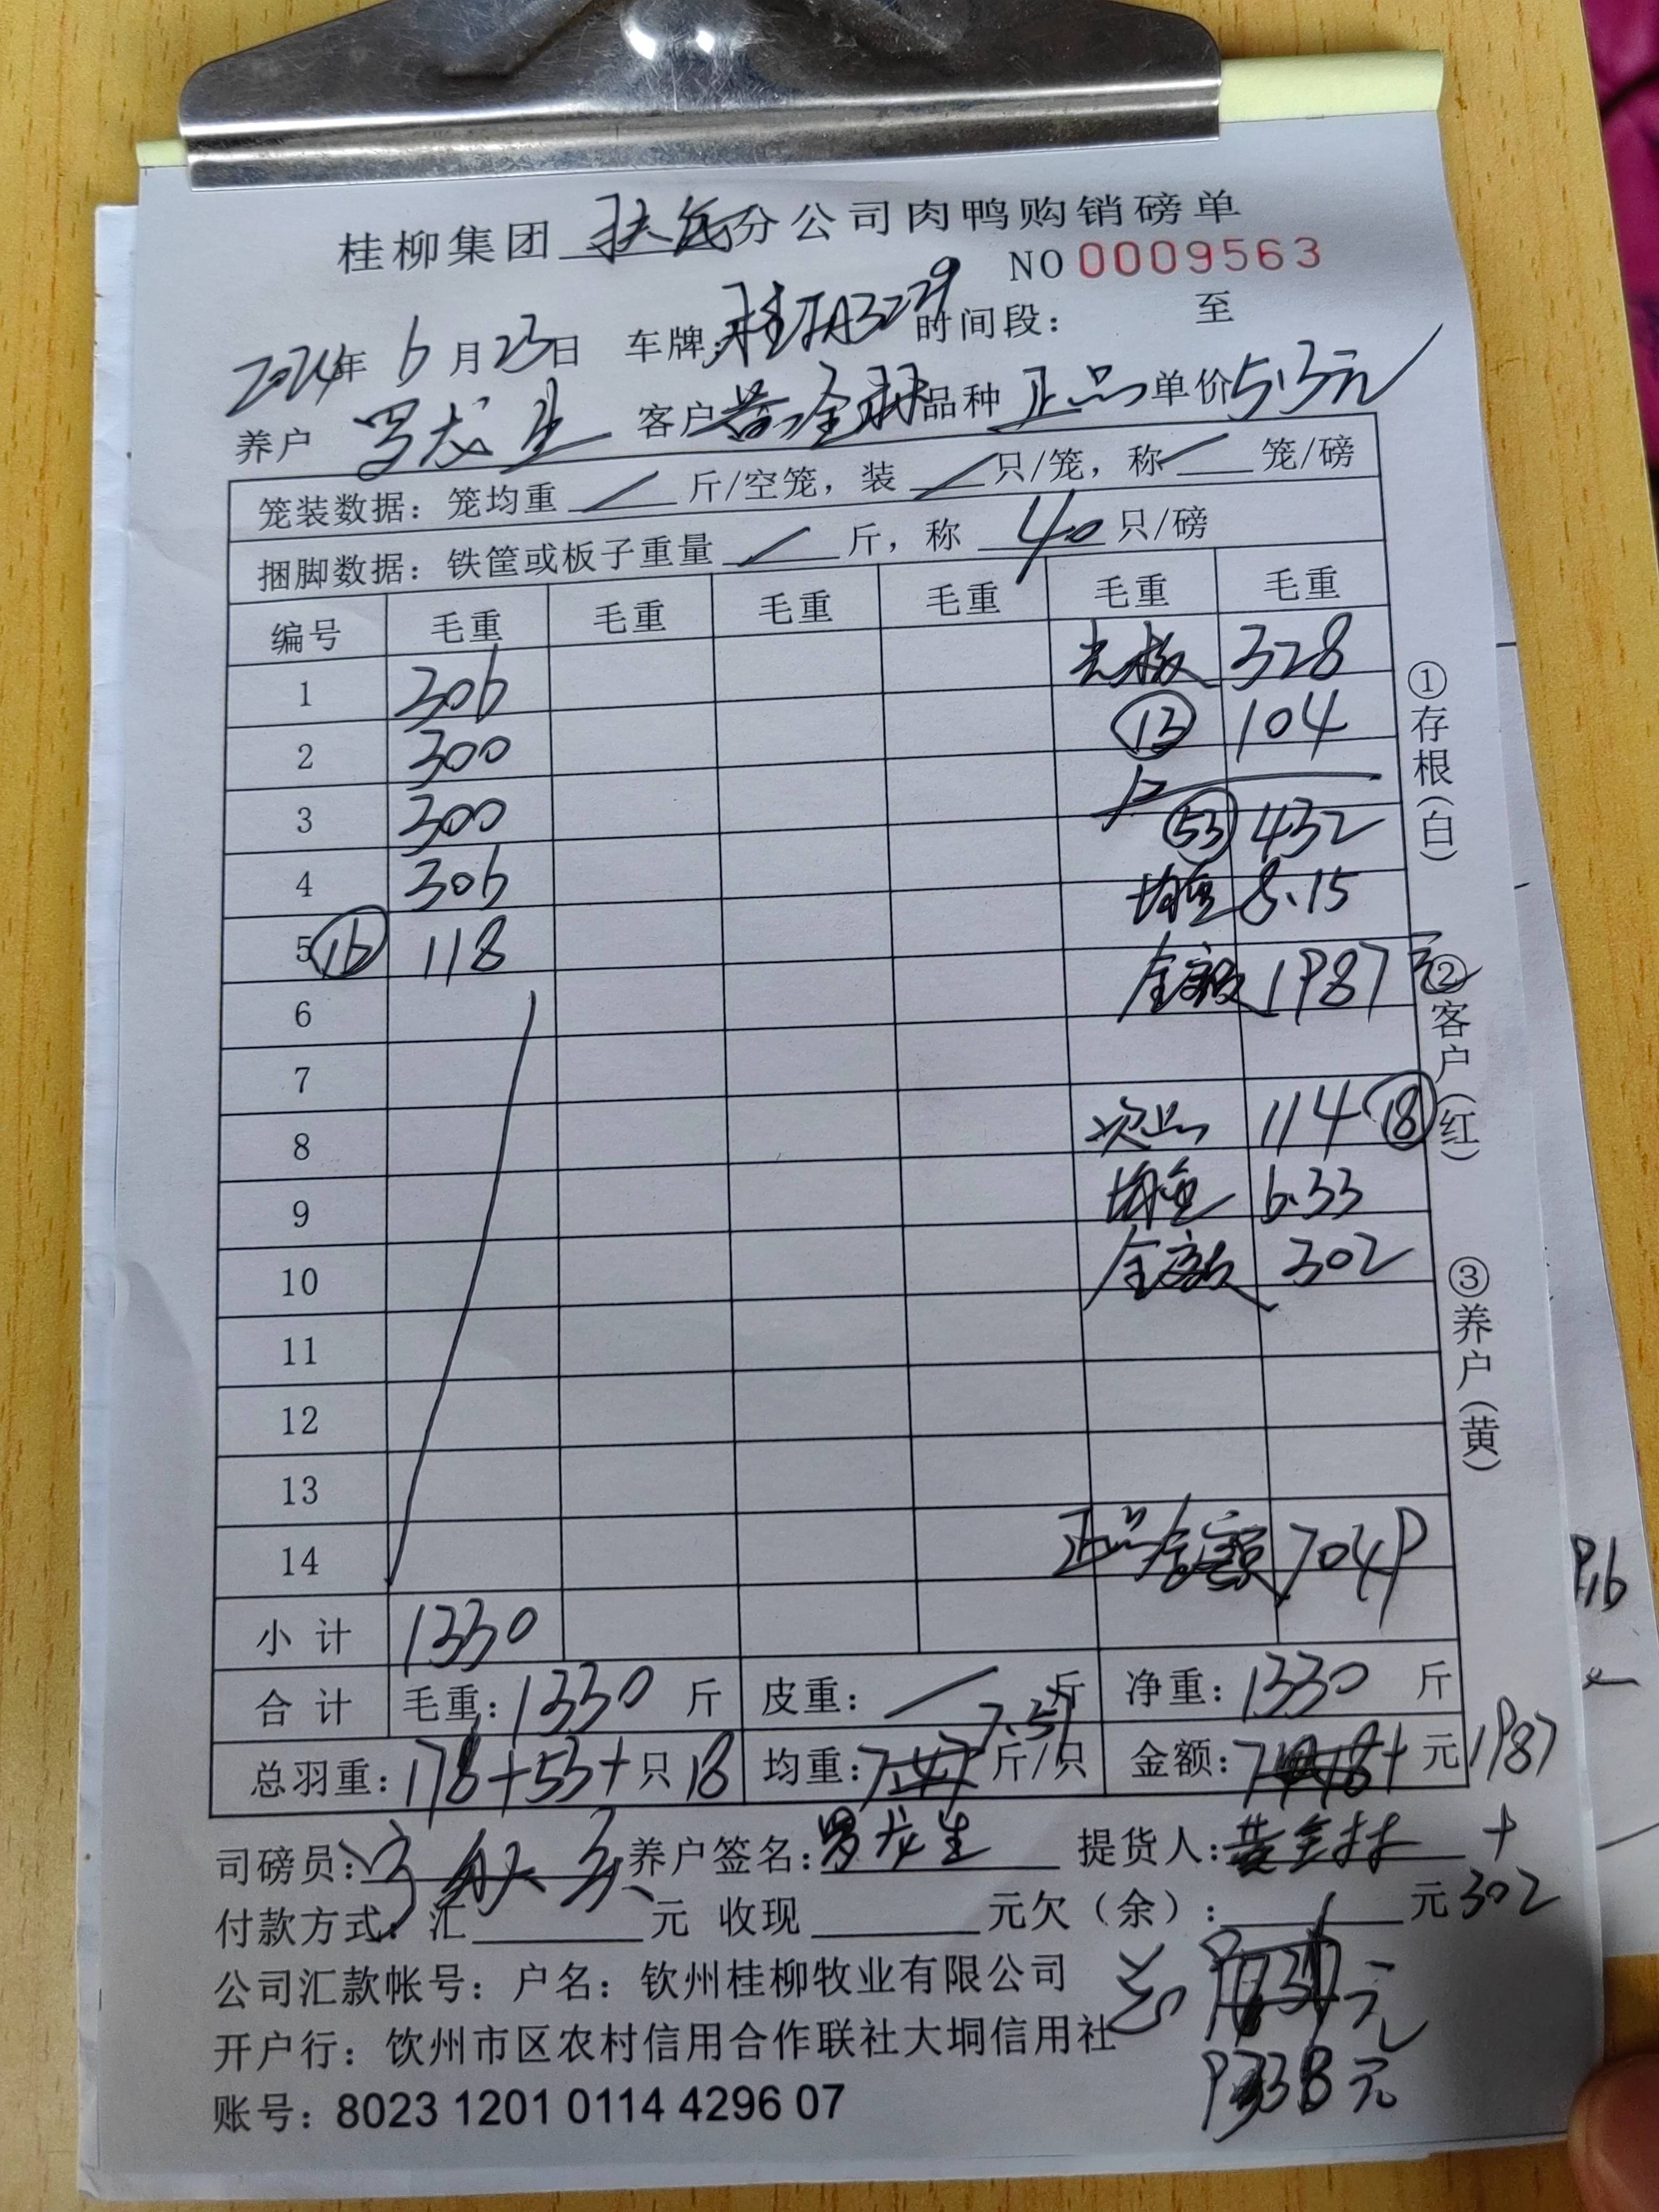 桂柳集团 分公司肉鸭购销磅单
NO 0009563
2024年 6月23日 车牌: 时间段: 至
养户 罗龙生 客户 黄金林 品种 正品 单价 5.3元
笼装数据: 笼均重 / 斤/空笼, 装 / 只/笼, 称 / 笼/磅
捆脚数据: 铁筐或板子重量 / 斤, 称 40 只/磅
编号 毛重 毛重 毛重 毛重 毛重 毛重
1 306 328
2 300 13 104
3 300 53 432
4 306 均重 8.15
5 16 118 金额 1987 元
6
7
8 次品 114 18
9 均重 6.33
10 金额 302
11
12
13
14 正品金额 7049
小 计 1330
合 计 毛重: 1330 斤 皮重: / 斤 净重: 1330 斤
总羽重: 178+53+ 只 18 均重: 斤/只 金额: 元 1987
司磅员: 养户签名: 罗龙生 提货人: 黄金林 +
付款方式: 汇 元 收现 元欠(余): 元 302
公司汇款帐号: 户名: 钦州桂柳牧业有限公司 总 元
开户行: 钦州市区农村信用合作联社大垌信用社
账号: 8023 1201 0114 4296 07 9338元
①存根(白)
②客户(红)
③养户(黄)